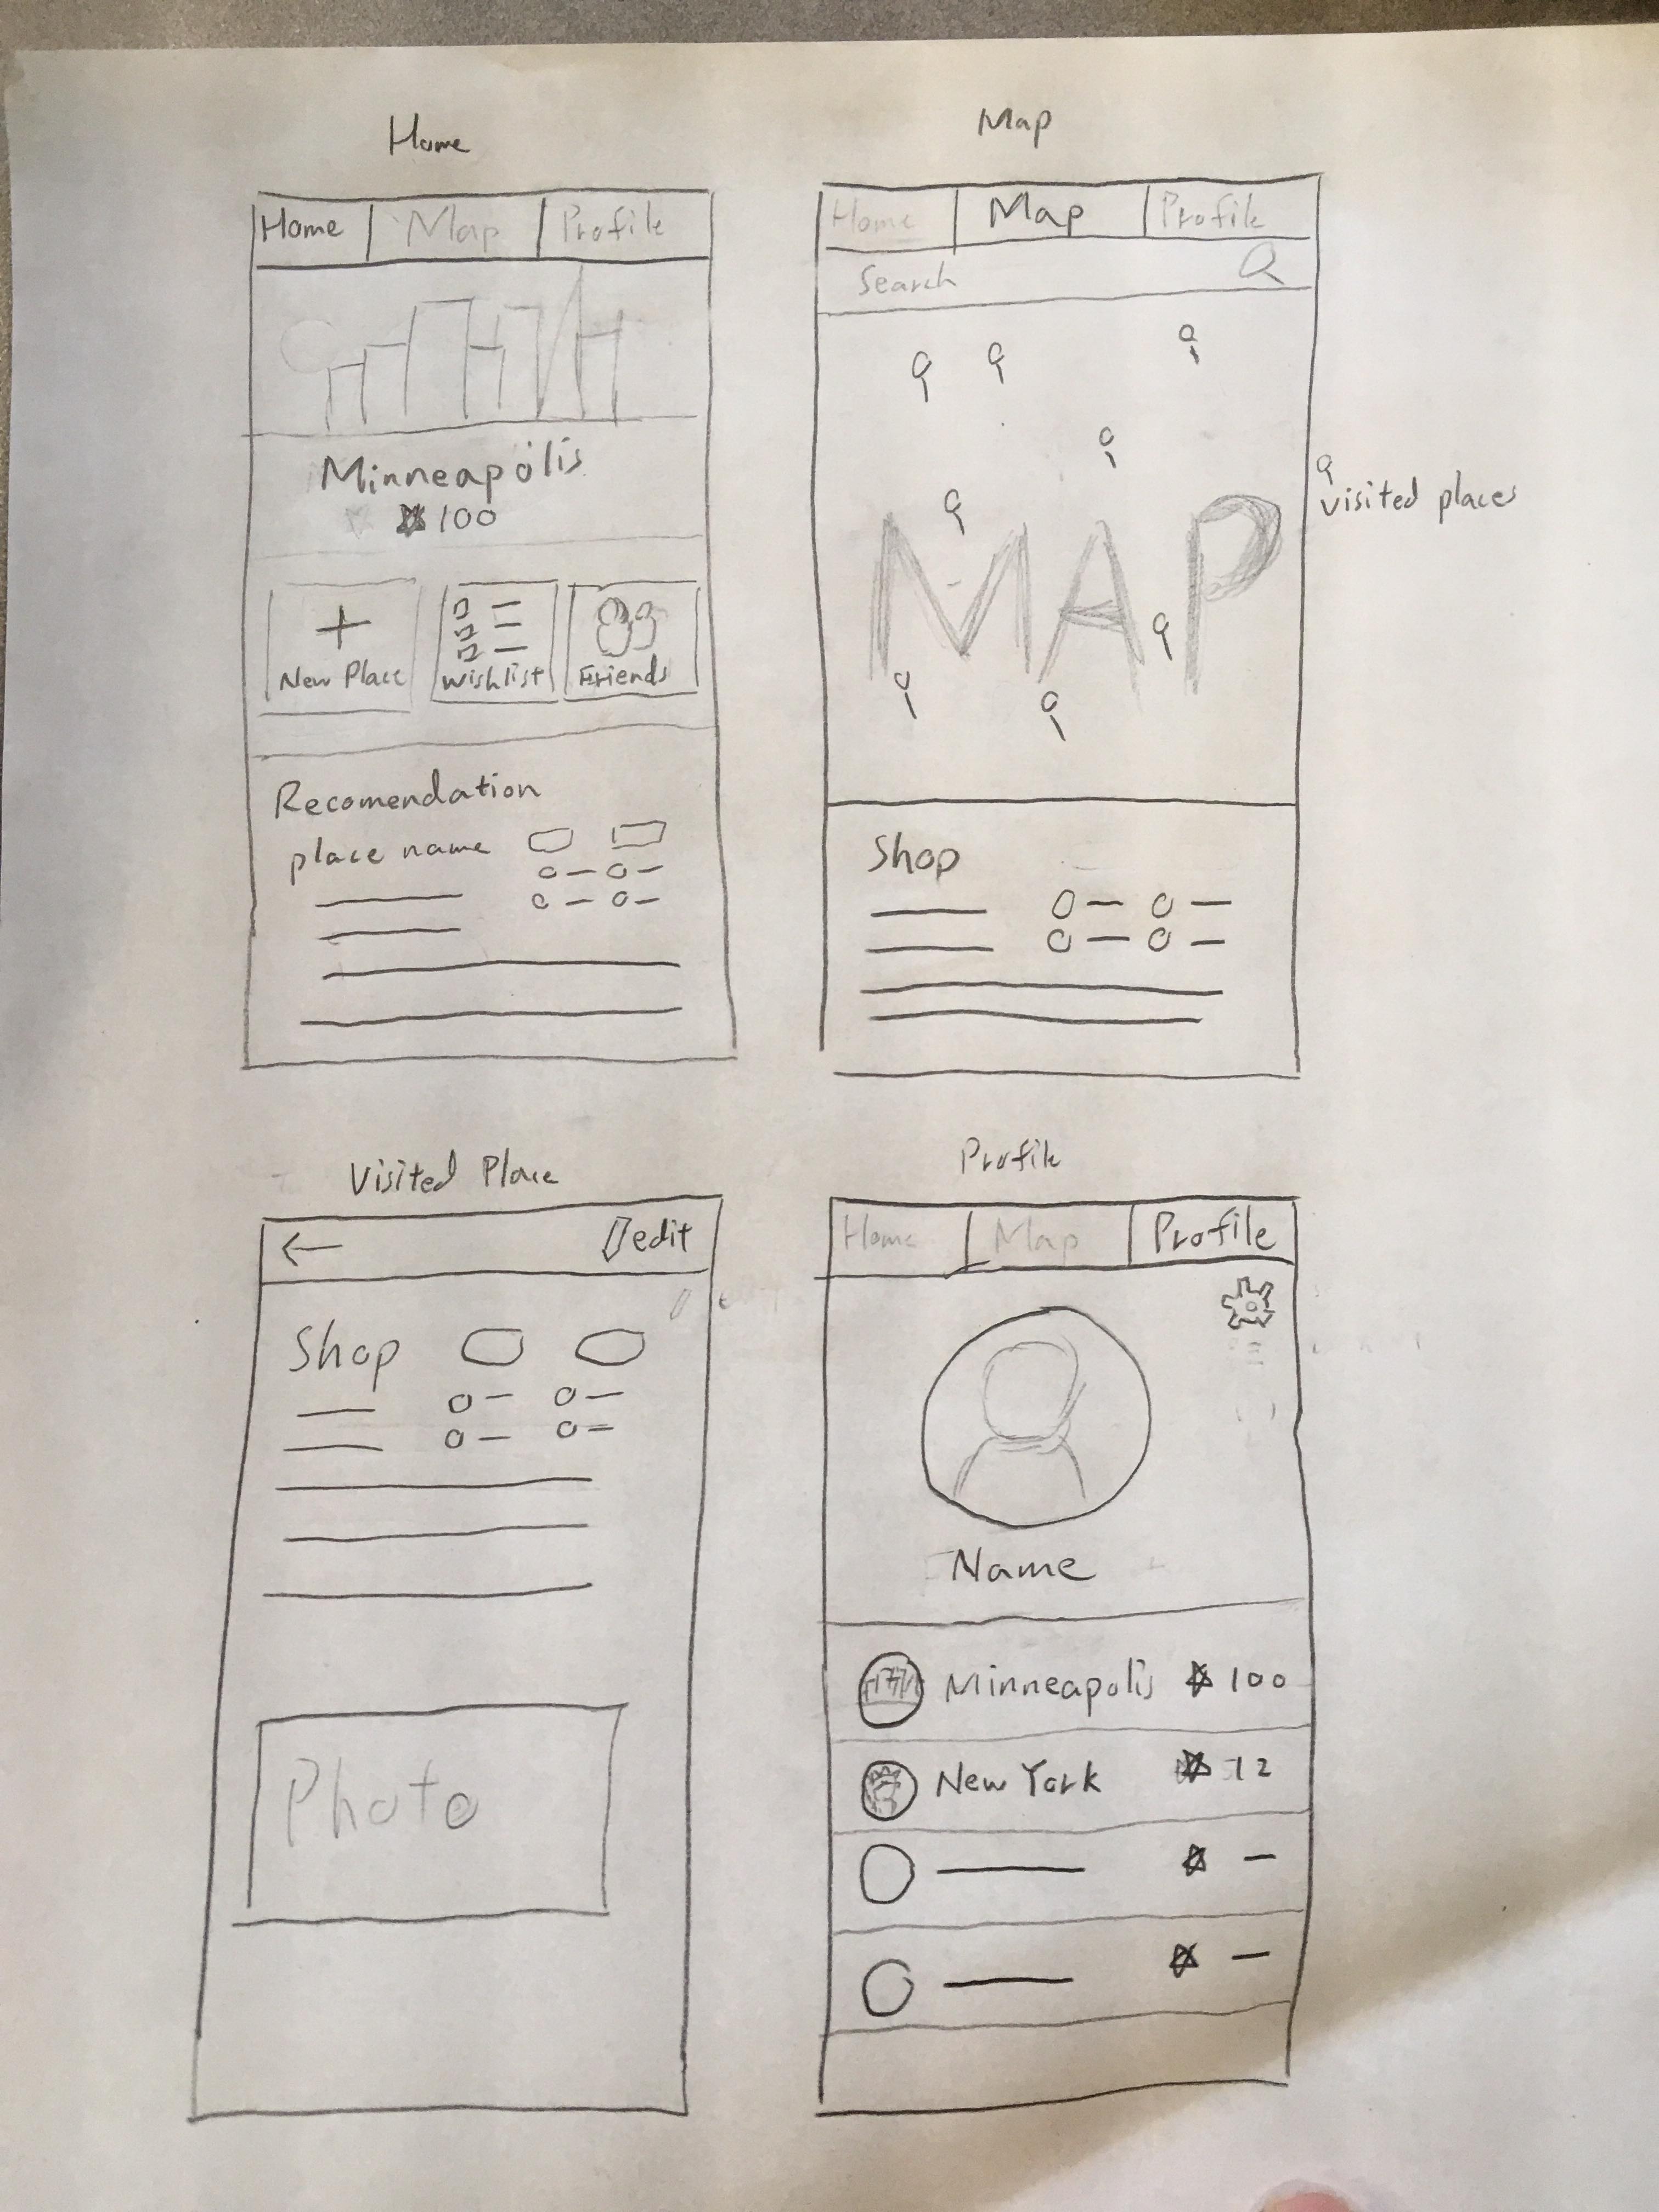 Home
Home Map Profile
Minneapolis
100
New Place Wishlist Friends
Recomendation
place name
Map
Home Map Profile
Search
MAP
visited places
Shop
Visited Place
edit
Shop
Photo
Profile
Home Map Profile
Name
Minneapolis 100
New York 12